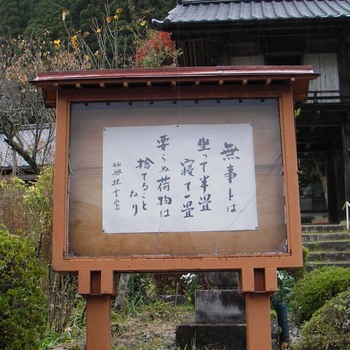 無事とは
坐って半畳
寝て一畳
要らぬ荷物は
捨てること
なり